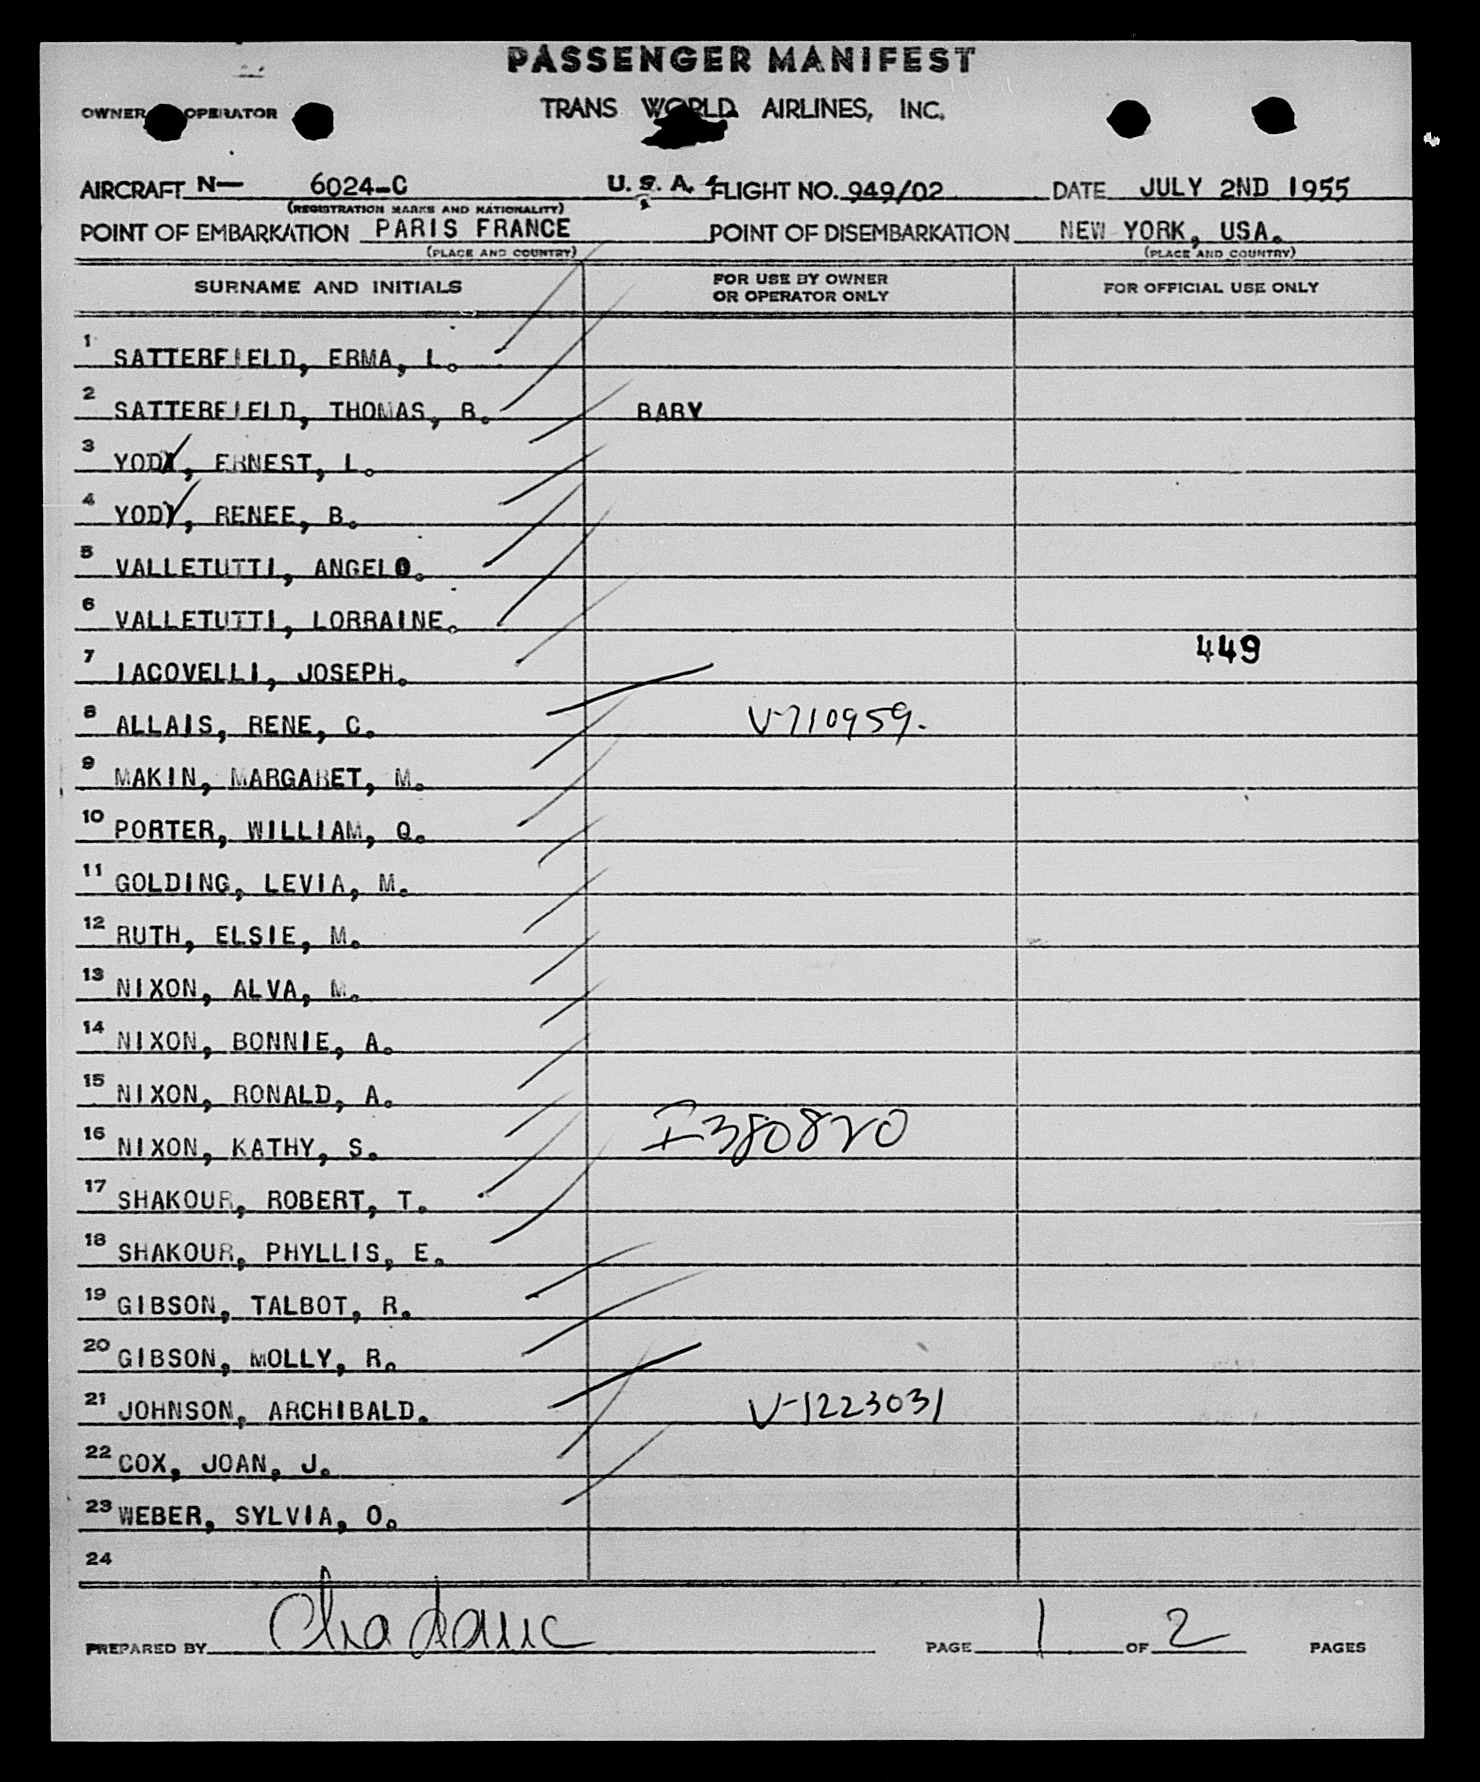 PASSENGER MANIFEST
OWNER OPERATOR TRANS WORLD AIRLINES, INC.
AIRCRAFT N— 6024-C U.S.A. FLIGHT NO. 949/02 DATE JULY 2ND 1955
(REGISTRATION MARKS AND NATIONALITY)
POINT OF EMBARKATION PARIS FRANCE POINT OF DISEMBARKATION NEW YORK, USA.
(PLACE AND COUNTRY) (PLACE AND COUNTRY)
SURNAME AND INITIALS FOR USE BY OWNER OR OPERATOR ONLY FOR OFFICIAL USE ONLY
1 SATTERFIELD, ERMA, L.
2 SATTERFIELD, THOMAS, B. BABY
3 YODY, ERNEST, L.
4 YODY, RENEE, B.
5 VALLETUTTI, ANGELO.
6 VALLETUTTI, LORRAINE.
449
7 IACOVELLI, JOSEPH.
8 ALLAIS, RENE, C. V-710959.
9 MAKIN, MARGARET, M.
10 PORTER, WILLIAM, Q.
11 GOLDING, LEVIA, M.
12 RUTH, ELSIE, M.
13 NIXON, ALVA, M.
14 NIXON, BONNIE, A.
15 NIXON, RONALD, A.
16 NIXON, KATHY, S. I380820
17 SHAKOUR, ROBERT, T.
18 SHAKOUR, PHYLLIS, E.
19 GIBSON, TALBOT, R.
20 GIBSON, MOLLY, R.
21 JOHNSON, ARCHIBALD. V-1223031
22 COX, JOAN, J.
23 WEBER, SYLVIA, O.
24
PREPARED BY PAGE 1 OF 2 PAGES